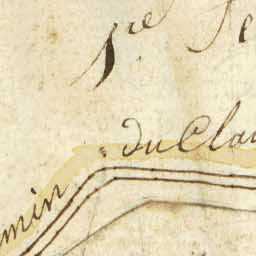 1re Se
du Clau
min